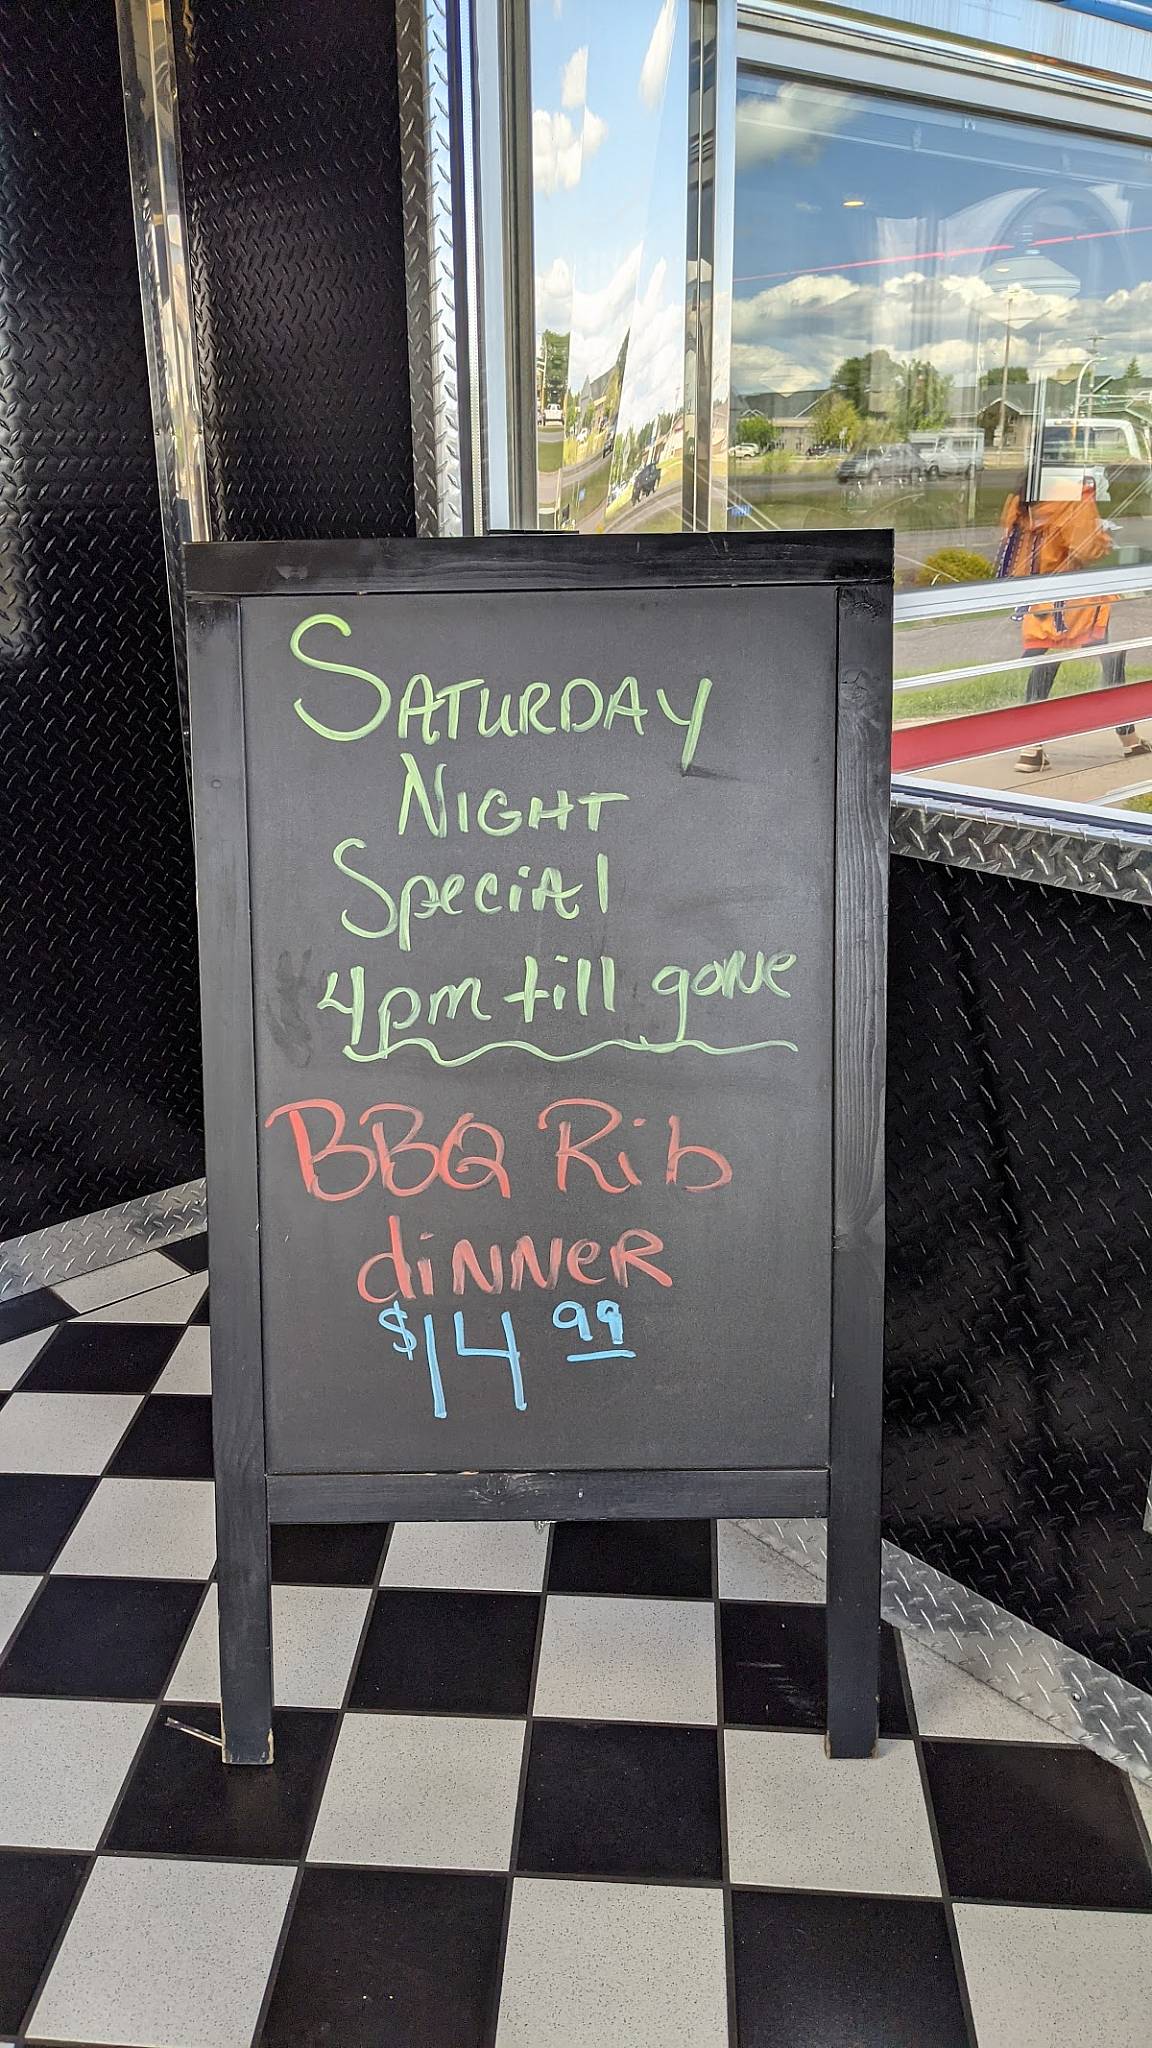 SATURDAY
NIGHT
Special
4pm till gone
BBQ Rib
dinner
$14 99